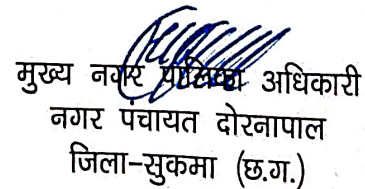 मुख्य नगर पालिका अधिकारी
नगर पंचायत दोरनापाल
जिला-सुकमा (छ.ग.)